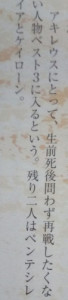 アキレウスにとって、生前死後問わず再戦したくな
い人物ベスト3に入るという。残り二人はペンテシレ
イアとケイローン。